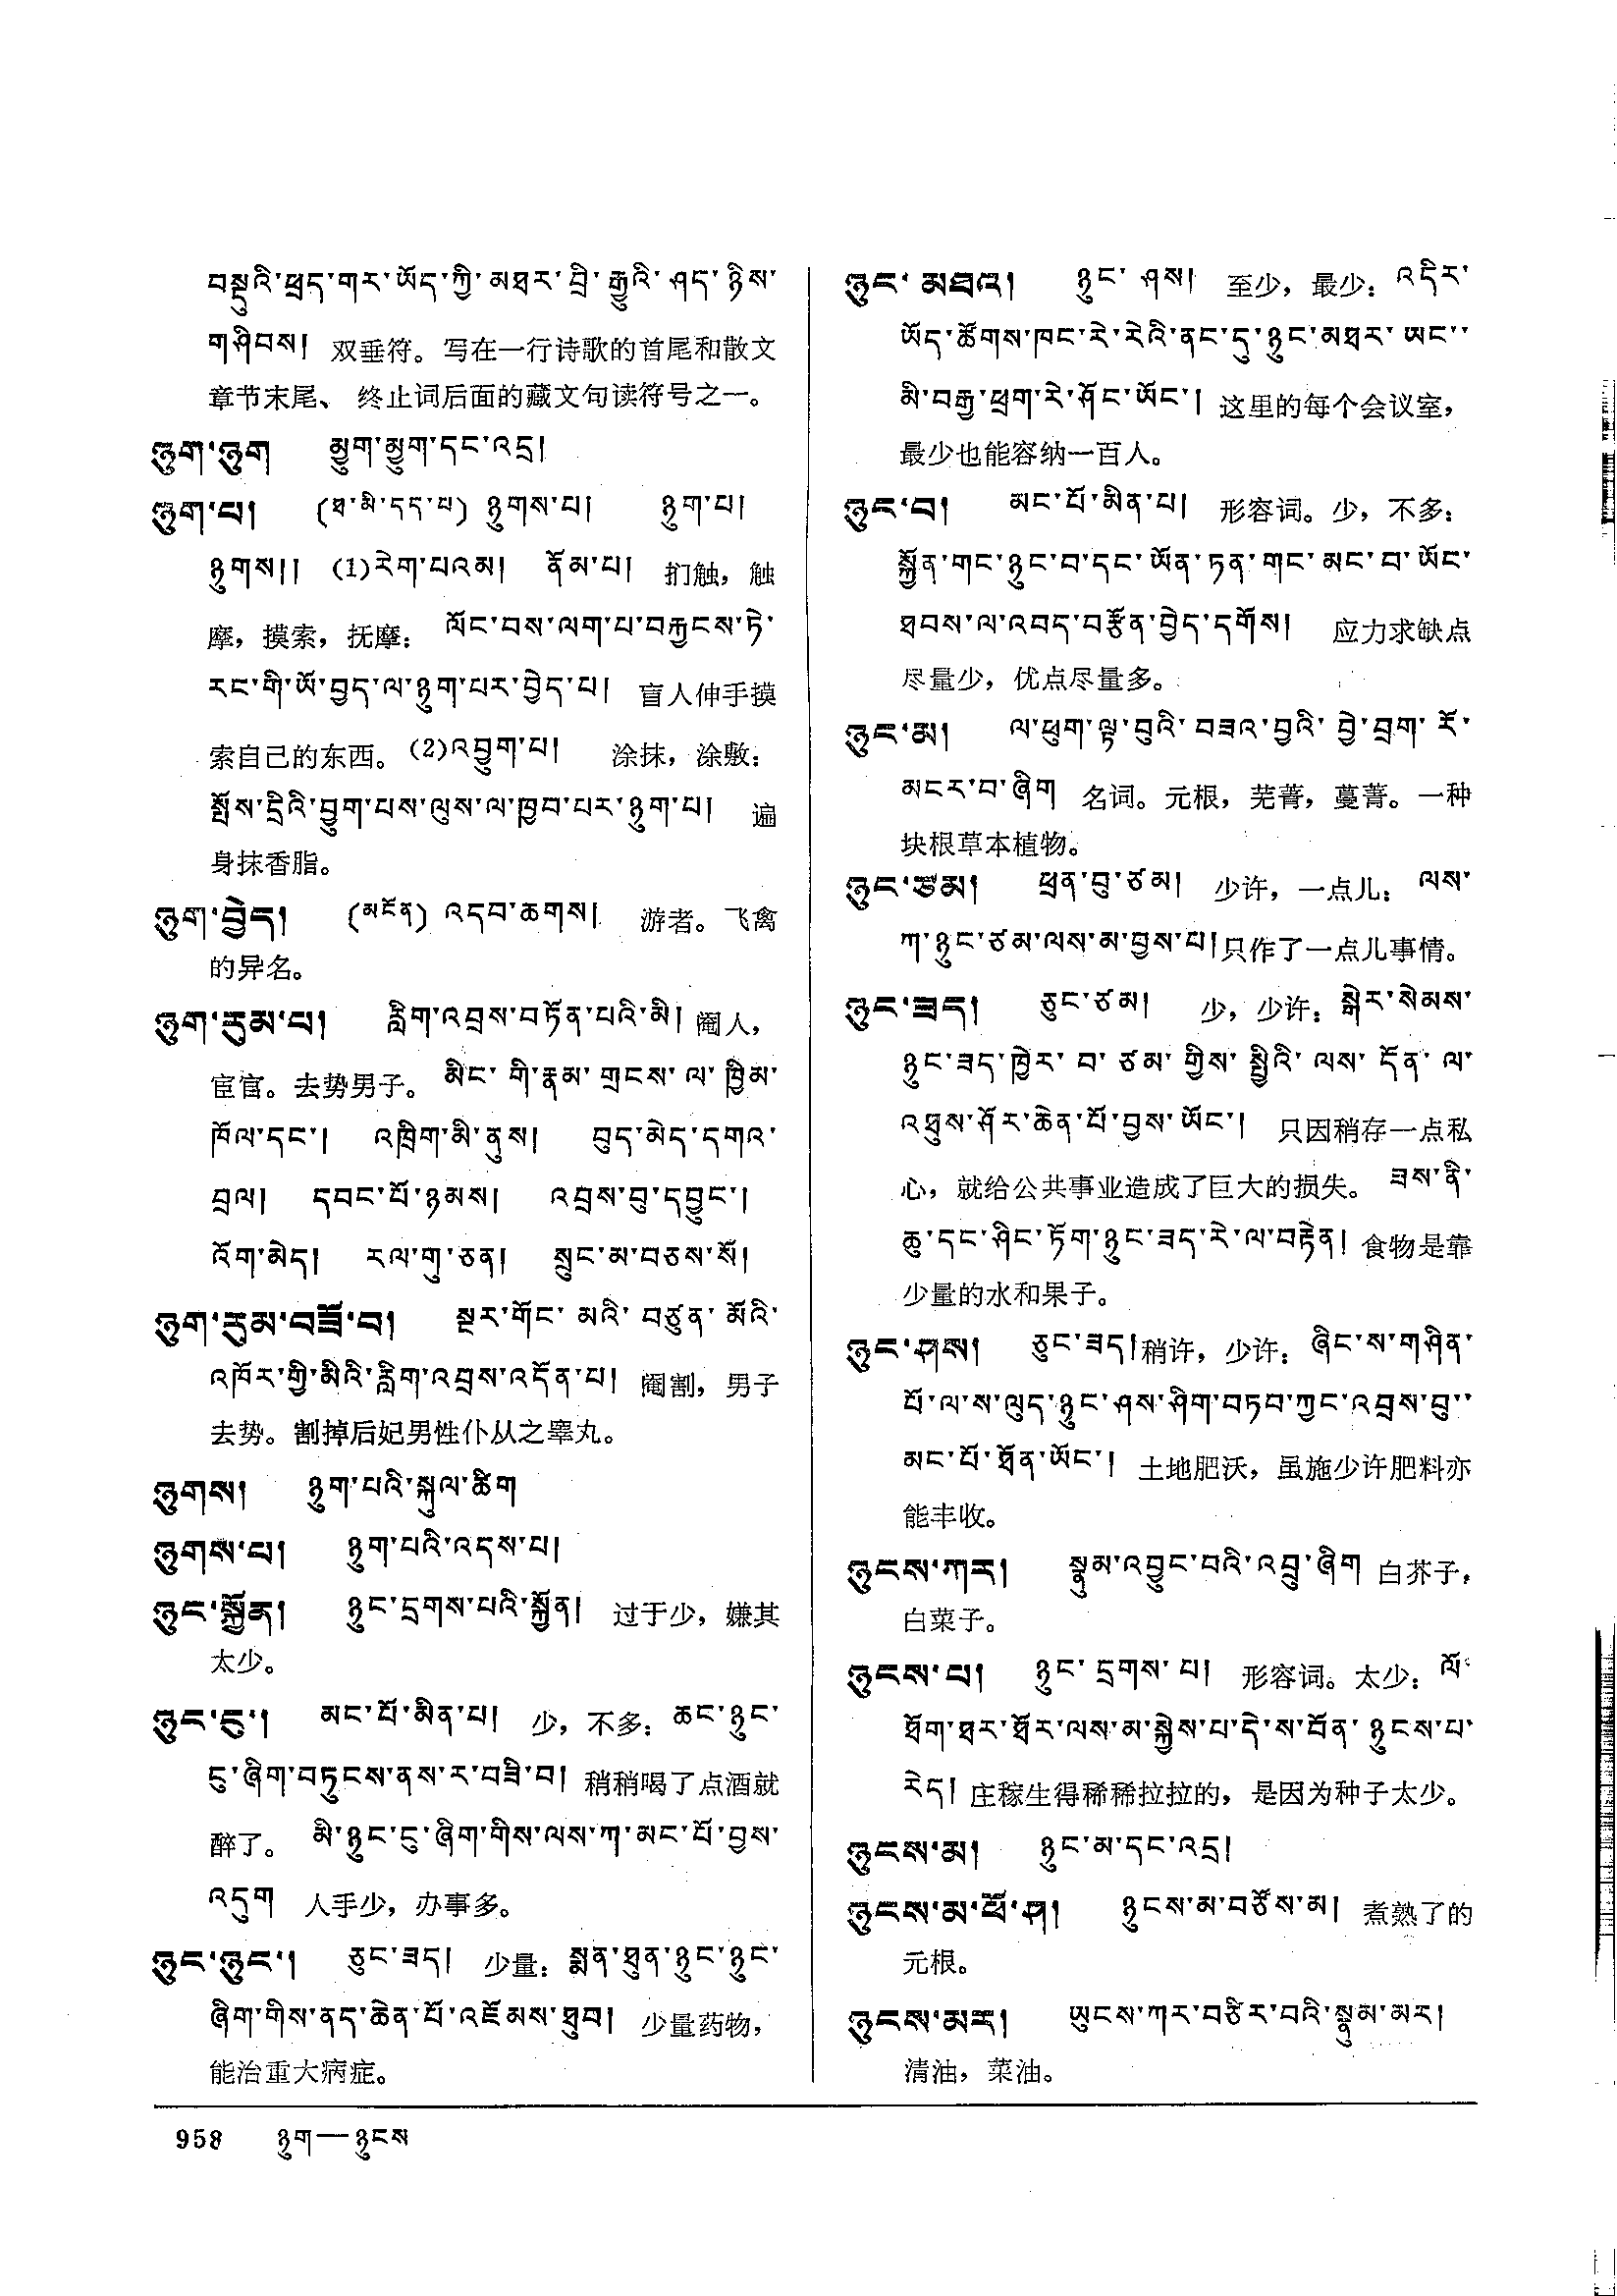 བསྡུའི་ཕྲད་གར་ཡོད་ཀྱི་མཐར་བྲི་རྒྱུའི་ཤད་ཉིས་
གཤིབས། 双垂符。写在一行诗歌的首尾和散文
章节末尾、 终止词后面的藏文句读符号之一。
ཉུག་ཉུག མྱུག་མྱུག་དང་འདྲ།
ཉུག་པ། (ཐ་མི་དད་པ) ཉུགས་པ། ཉུག་པ།
ཉུགས།། (1)རེག་པའམ། ནོམ་པ། 扪触，触
摩，摸索，抚摩： ལོང་བས་ལག་པ་བརྐྱངས་ཏེ་
རང་གི་ཡོ་བྱད་ལ་ཉུག་པར་བྱེད་པ། 盲人伸手摸
索自己的东西。(2)འབྱུག་པ། 涂抹，涂敷：
སྤོས་དྲིའི་བྱུག་པས་ལུས་ལ་ཁྱབ་པར་ཉུག་པ། 遍
身抹香脂。
ཉུག་བྱེད། (མངོན) འདབ་ཆགས། 游者。飞禽
的异名。
ཉུག་རུམ་པ། རླིག་འབྲས་བཏོན་པའི་མི། 阉人，
宦官。去势男子。 མིང་གི་རྣམ་གྲངས་ལ་ཁྱིམ་
ཁོལ་དང་། འཁྲིག་མི་ནུས། བུད་མེད་དགའ་
བྲལ། དབང་པོ་ཉམས། འབྲས་བུ་དབྱུང་།
འོག་མེད། རལ་གུ་ཅན། སྲུང་མ་བཅས་སོ།
ཉུག་རུམ་བཟོ་བ། སྔར་གོང་མའི་བཙུན་མོའི་
འཁོར་གྱི་མིའི་རླིག་འབྲས་འདོན་པ། 阉割，男子
去势。割掉后妃男性仆从之睾丸。
ཉུགས། ཉུག་པའི་སྐུལ་ཚིག
ཉུགས་པ། ཉུག་པའི་འདས་པ།
ཉུང་སྐྱོན། ཉུང་དྲགས་པའི་སྐྱོན། 过于少，嫌其
太少。
ཉུང་ངུ་། མང་པོ་མིན་པ། 少，不多： ཆང་ཉུང་
ངུ་ཞིག་བཏུངས་ནས་ར་བཟི་བ། 稍稍喝了点酒就
醉了。 མི་ཉུང་ངུ་ཞིག་གིས་ལས་ཀ་མང་པོ་བྱས་
འདུག 人手少，办事多。
ཉུང་ཉུང་། ཅུང་ཟད། 少量： སྨན་ཐུན་ཉུང་ཉུང་
ཞིག་གིས་ནད་ཆེན་པོ་འཇོམས་ཐུབ། 少量药物，
能治重大病症。
ཉུང་མཐའ། ཉུང་ཤས། 至少，最少： འདིར་
ཡོད་ཚོགས་ཁང་རེ་རེའི་ནང་དུ་ཉུང་མཐར་ཡང་་
མི་བརྒྱ་ཕྲག་རེ་ཤོང་ཡོང་། 这里的每个会议室，
最少也能容纳一百人。
ཉུང་བ། མང་པོ་མིན་པ། 形容词。少，不多：
སྐྱོན་གང་ཉུང་བ་དང་ཡོན་ཏན་གང་མང་བ་ཡོང་
ཐབས་ལ་འབད་བརྩོན་བྱེད་དགོས། 应力求缺点
尽量少，优点尽量多。
ཉུང་མ། ལ་ཕུག་ལྟ་བུའི་བཟའ་བྱའི་བྱེ་བྲག་རོ་
མངར་བ་ཞིག 名词。元根，芜菁，蔓菁。一种
块根草本植物。
ཉུང་ཙམ། ཕྲན་བུ་ཙམ། 少许，一点儿： ལས་
ཀ་ཉུང་ཙམ་ལས་མ་བྱས་པ།只作了一点儿事情。
ཉུང་ཟད། ཅུང་ཙམ། 少，少许： སྒེར་སེམས་
ཉུང་ཟད་ཁྱེར་བ་ཙམ་གྱིས་སྤྱིའི་ལས་དོན་ལ་
འཐུས་ཤོར་ཆེན་པོ་བྱས་ཡོང་། 只因稍存一点私
心，就给公共事业造成了巨大的损失。 ཟས་ནི་
ཆུ་དང་ཤིང་ཏོག་ཉུང་ཟད་རེ་ལ་བརྟེན། 食物是靠
少量的水和果子。
ཉུང་ཤས། ཅུང་ཟད།稍许，少许： ཞིང་ས་གཤིན་
པོ་ལ་ས་ལུད་ཉུང་ཤས་ཤིག་བཏབ་ཀྱང་འབྲས་བུ་་
མང་པོ་ཐོན་ཡོང་། 土地肥沃，虽施少许肥料亦
能丰收。
ཉུངས་ཀར། སྣུམ་འབྱུང་བའི་འབྲུ་ཞིག 白芥子，
白菜子。
ཉུངས་པ། ཉུང་དྲགས་པ། 形容词。太少： ལོ་
ཐོག་ཐར་ཐོར་ལས་མ་སྐྱེས་པ་དེ་ས་བོན་ཉུངས་པ་
རེད། 庄稼生得稀稀拉拉的，是因为种子太少。
ཉུངས་མ། ཉུང་མ་དང་འདྲ།
ཉུངས་མ་ཕོ་ཤ། ཉུངས་མ་བཙོས་མ། 煮熟了的
元根。
ཉུངས་མར། ཡུངས་ཀར་བཙིར་བའི་སྣུམ་མར།
清油，菜油。
958 ཉུག—ཉུངས